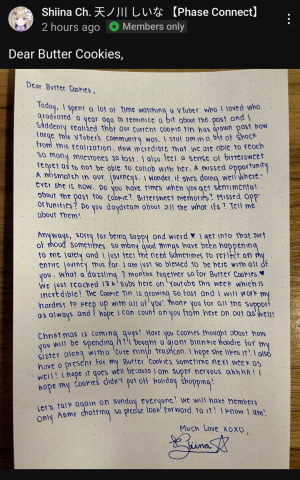 Shiina Ch. 天ノ川 しいな 【Phase Connect】
2 hours ago
Members only
Dear Butter Cookies,
Dear Butter Cookies,
Today, I spent a lot of time watching a Vtuber who I loved who
graduated a year ago to reminice a bit about the past and I
suddenly realized that our current cookie tin has grown past how
large this vtuber's community was. I still am in a bit of shock
from this realization. How incredible that we are able to reach
so many milestones so fast. I also feel a sense of bittersweet
regret as to not be able to collab with her. A missed opportunity.
A mismatch in our journeys. I wonder if she's doing well where-
ever she is now. Do you have times when you get sentimental
about the past too Cookie? Bittersweet memories? Missed opp-
ortunities? Do you daydream about all the what ifs? Tell me
about them!
Anyways, sorry for being sappy and weird ♥ I get into that sort
of mood sometimes. So many good things have been happening
to me lately and I just feel the need sometimes to reflect on my
entire journey thus far. I am just so blessed to be here with all of
you. What a dazzling 7 months together so far Butter Cookies. ♥
We just reached 18k subs here on Youtube this week which is
incredible! The Cookie Tin is growing so fast and I will work my
hardest to keep up with all of you! Thank you for all the support
as always and I hope I can count on you from here on out as well!
Christmas is coming guys! Have you cookies thought about how
you will be spending it? I bought a giant blankie hoodie for my
sister along with a cute ninja trashcan. I hope she likes it! I also
have a present for my Butter Cookies sometime next week as
well! I hope it goes well because I am super nervous ahhhh! I
hope my Cookies didn't put off holiday shopping!
Let's talk again on Sunday everyone! We will have members
only Asmr chatting so please look forward to it! I know I am!
Much Love XOXO,
Shiina